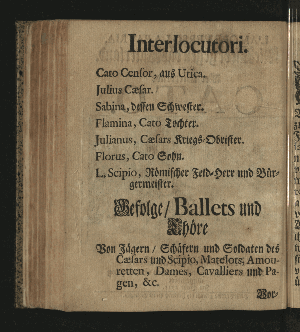 Interlocutori.
Cato Censor, aus Utica.
Julius Cæsar.
Sabina, dessen Schwester.
Flamina, Cato Tochter.
Julianus, Cæsars Kriegs-Obrister.
Florus, Cato Sohn.
L. Scipio, Römischer Feld-Herr und Bür-
germeister.
Gefolge / Ballets und
Chöre
Von Jägern / Schäfern und Soldaten des
Cæsars und Scipio, Matelots, Amou-
retten, Dames, Cavalliers und Pa-
gen, &c.
Vor-